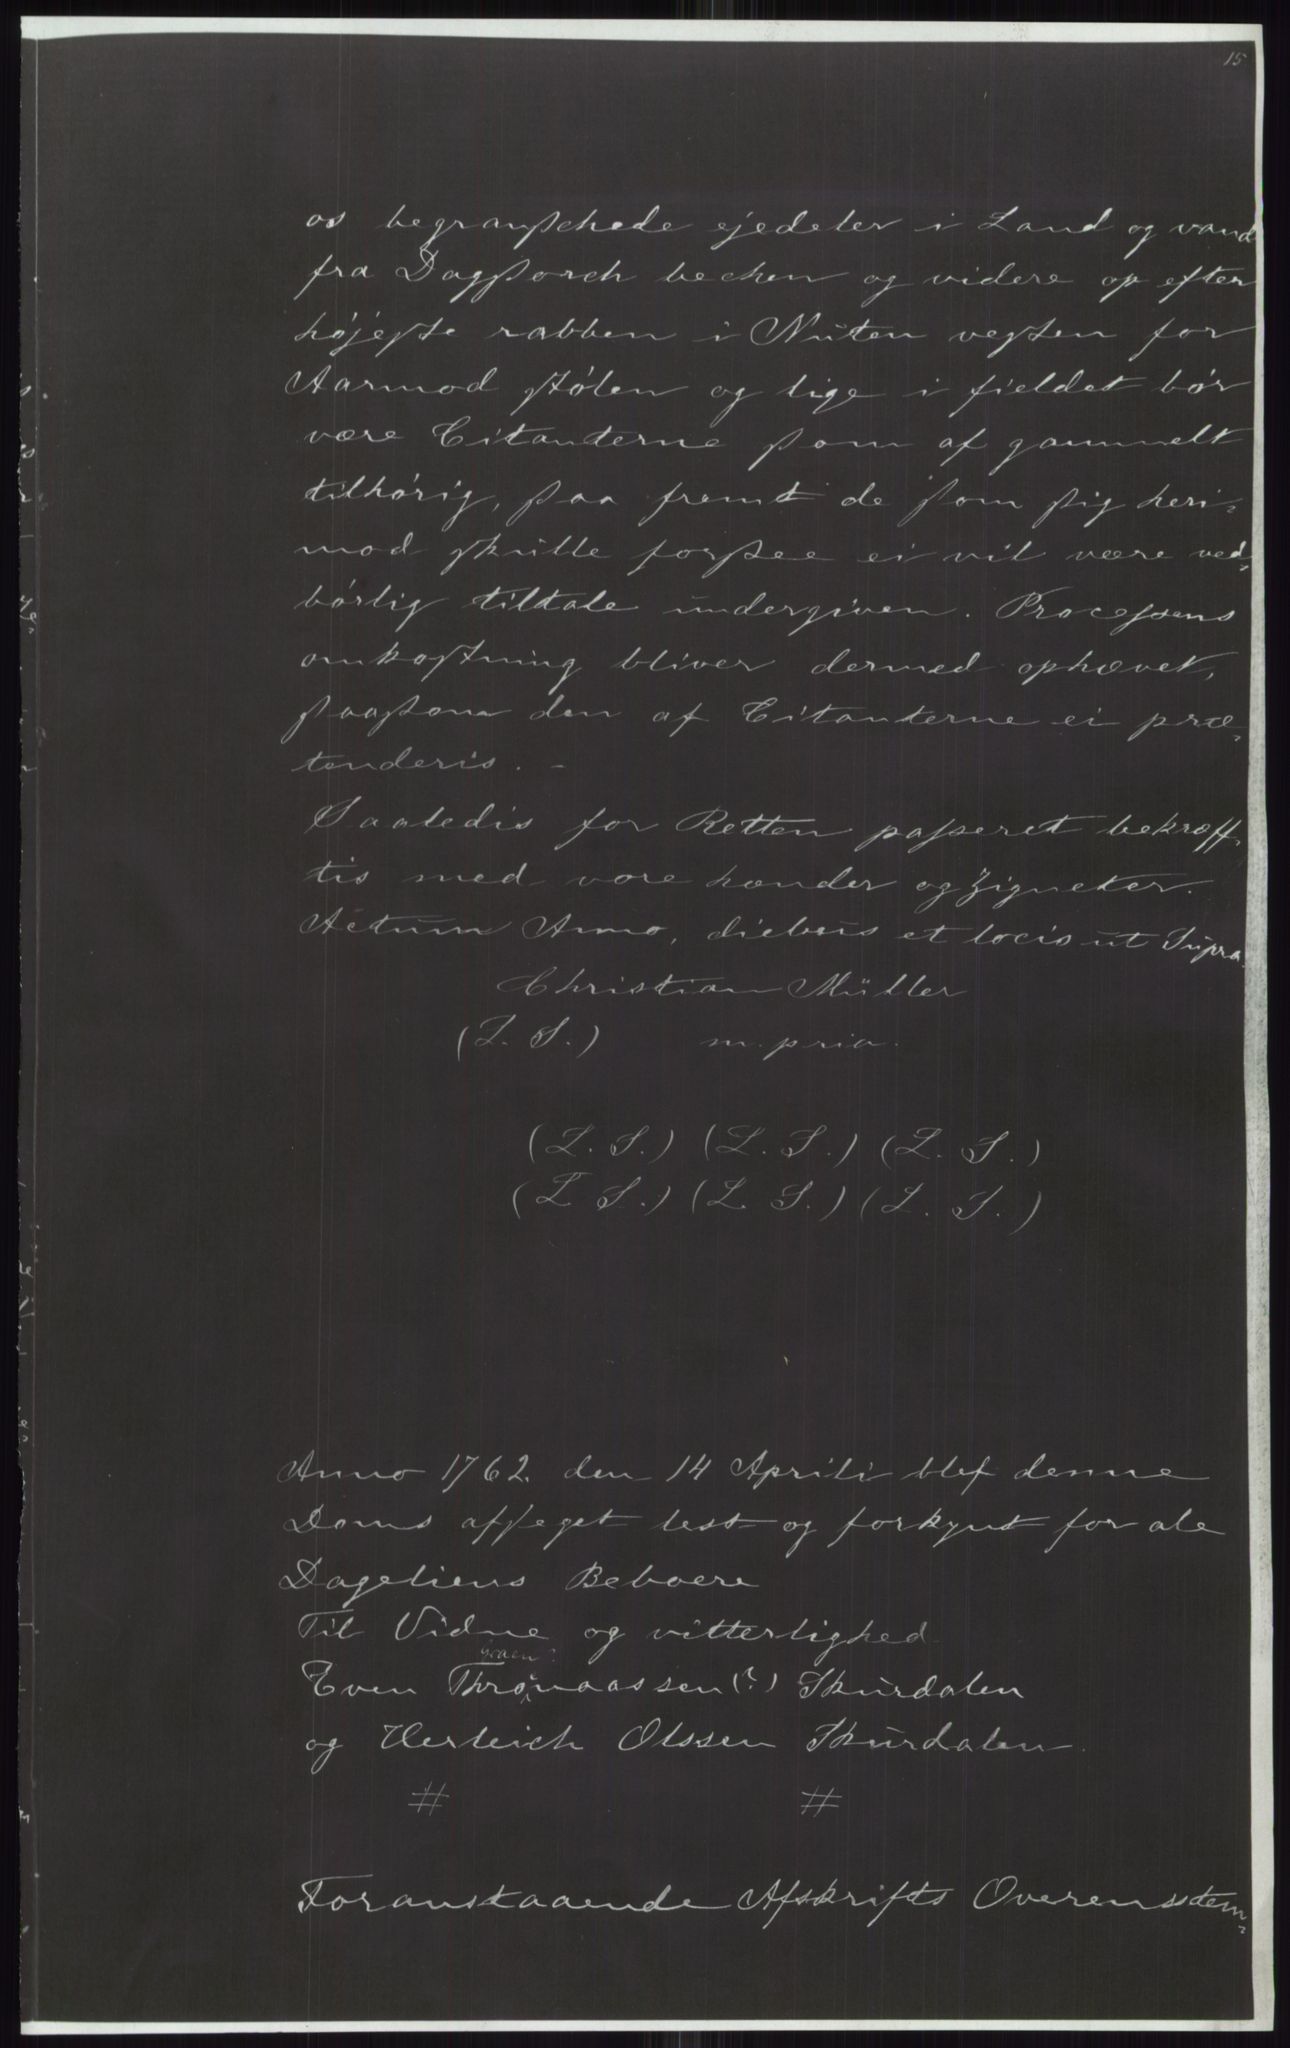 15
os begranschede ejedeler i Land og vand
fra Dagsorch bechen og videre op efter
højeste rabben i Nuten vesten for
Aarmod stølen og lige i fieldet bør
være Citanterne som af gammelt
tilhørig, saa fremt de som sig heri-
mod skulle forsee ei vil være ved-
børlig tiltale undergiven. Processens
omkostning bliver dermed ophævet,
saasom den af Citanterne ei præ-
tenderis. -
Saaledis for Retten passeret bekræff-
tis med vore hænder og Zigneter.
Actum Anno, diebus et locis ut Supra
Christian Müller
(L. S.) m. pria.
(L. S.) (L. S.) (L. S.)
(L S.) (L. S.) (L. S.)
Anno 1762 den 14 Aprili blef denne
Doms afsseget lest og forkynt for ale
Dageliens Beboere
Til Vidne og vitterlighed
Even Thronaassen (?) Skurdalen
og Herleich Olssen Skurdalen.
# #
Foranstaaende Afskrifts Overensstem-